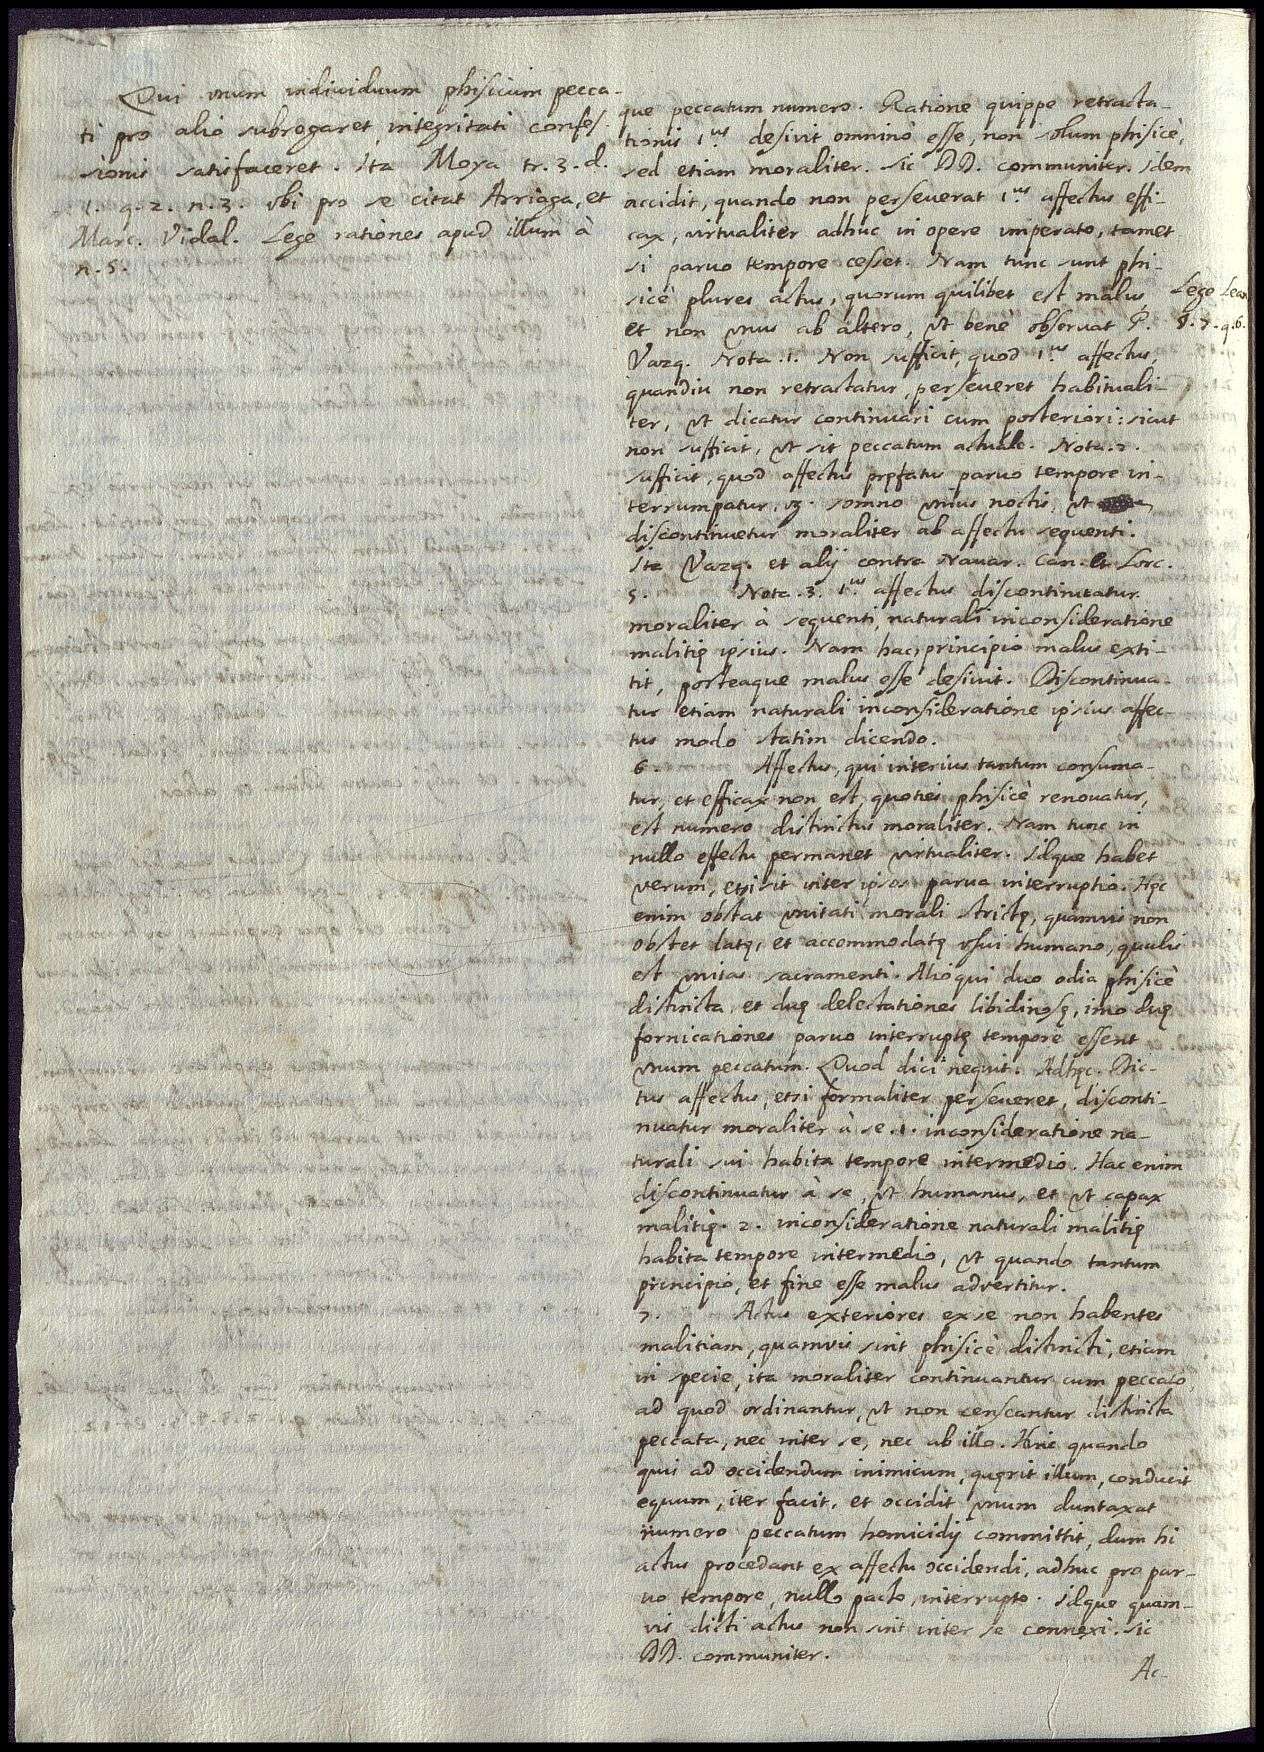 Qui vnum individuum phisicum pecca-
ti pro alio subrogaret integritati confes-
sionis satisfaceret. Ita Moya tr. 3. d.
1. q. 2. n. 3. vbi pro se citat Arriaga, et
Marc. Vidal. Lege rationes apud illum à
n. 5.
que peccatum numero. Ratione quippe retracta-
tionis 1.us desivit omninò esse, non solum phisicè,
sed etiam moraliter. sic DD. communiter. Idem
accidit, quando non perseverat 1.us affectus effi-
cax, virtualiter adhuc in opere imperato, tamet
si paruo tempore cesset. Nam tunc sunt phi-
sicè plures actus, quorum quilibet est malus
et non vnus ab altero, vt benè observat P.
Lege Lean
Vazq. Nota .1. Non sufficit, quod 1.us affectus,
quandiu non retractatur, perseveret habituali-
ter, vt dicatur continuari cum posteriori: sicut
non sufficit, vt sit peccatum actuale. Nota .2.
sufficit, quod affectus pręfatus paruo tempore in-
terrumpatur, vg. somno vnius noctis, vt
discontinuetur moraliter ab affectu sequenti.
Ita Vazq. et alij contra Navar. Can. et Lorc.
5. Nota .3. 1.us affectus discontinuatur
moraliter à sequenti, naturali inconsideratione
malitię ipsius. Nam hac, principio malus exti-
tit, posteaque malus esse desivit. Discontinua-
tur etiam naturali inconsideratione ipsius affec-
tus modo statim dicendo.
6. Affectus, qui interius tantum consuma-
tur, et efficax non est, quoties phisicè renovatur,
est numero distinctus moraliter. Nam tunc in
nullo effectu permanet virtualiter. Idque habet
verum, etsi sit inter ipsos parua interruptio. Hęc
enim obstat vnitati morali strictę, quamvis non
obstet latę, et accommodatę vsui humano, qualis
est vnitas sacramenti. Alioqui duo odia phisicè
distincta, et duę delectationes libidinosę, imo duę
fornicationes paruo interruptę tempore essent
vnum peccatum. Quod dici nequit. Adhęc. Dic-
tus affectus, etsi formaliter perseveret, disconti-
nuatur moraliter à se .1. inconsideratione na-
turali sui habita tempore intermedio. Hac enim
discontinuatur à se, vt humanus, et vt capax
malitię. 2. inconsideratione naturali malitię
habita tempore intermedio, vt quando tantum
principio, et fine esse malus advertitur.
7. Actus exteriores ex se non habentes
malitiam, quamvis sint phisicè distincti, etiam
in specie, ita moraliter continuantur cum peccato,
ad quod ordinantur, vt non censeantur distincta
peccata, nec inter se, nec ab illo. Hinc quando
quis ad occidendum inimicum, quęrit illum, conducit
equum, iter facit, et occidit vnum duntaxat
numero peccatum homicidij committit, dum hi
actus procedant ex affectu occidendi, adhuc pro par-
uo tempore, nullo pacto, interrupto. Idque quam-
vis dicti actus non sint inter se connexi. sic
DD. communiter.
Ac-